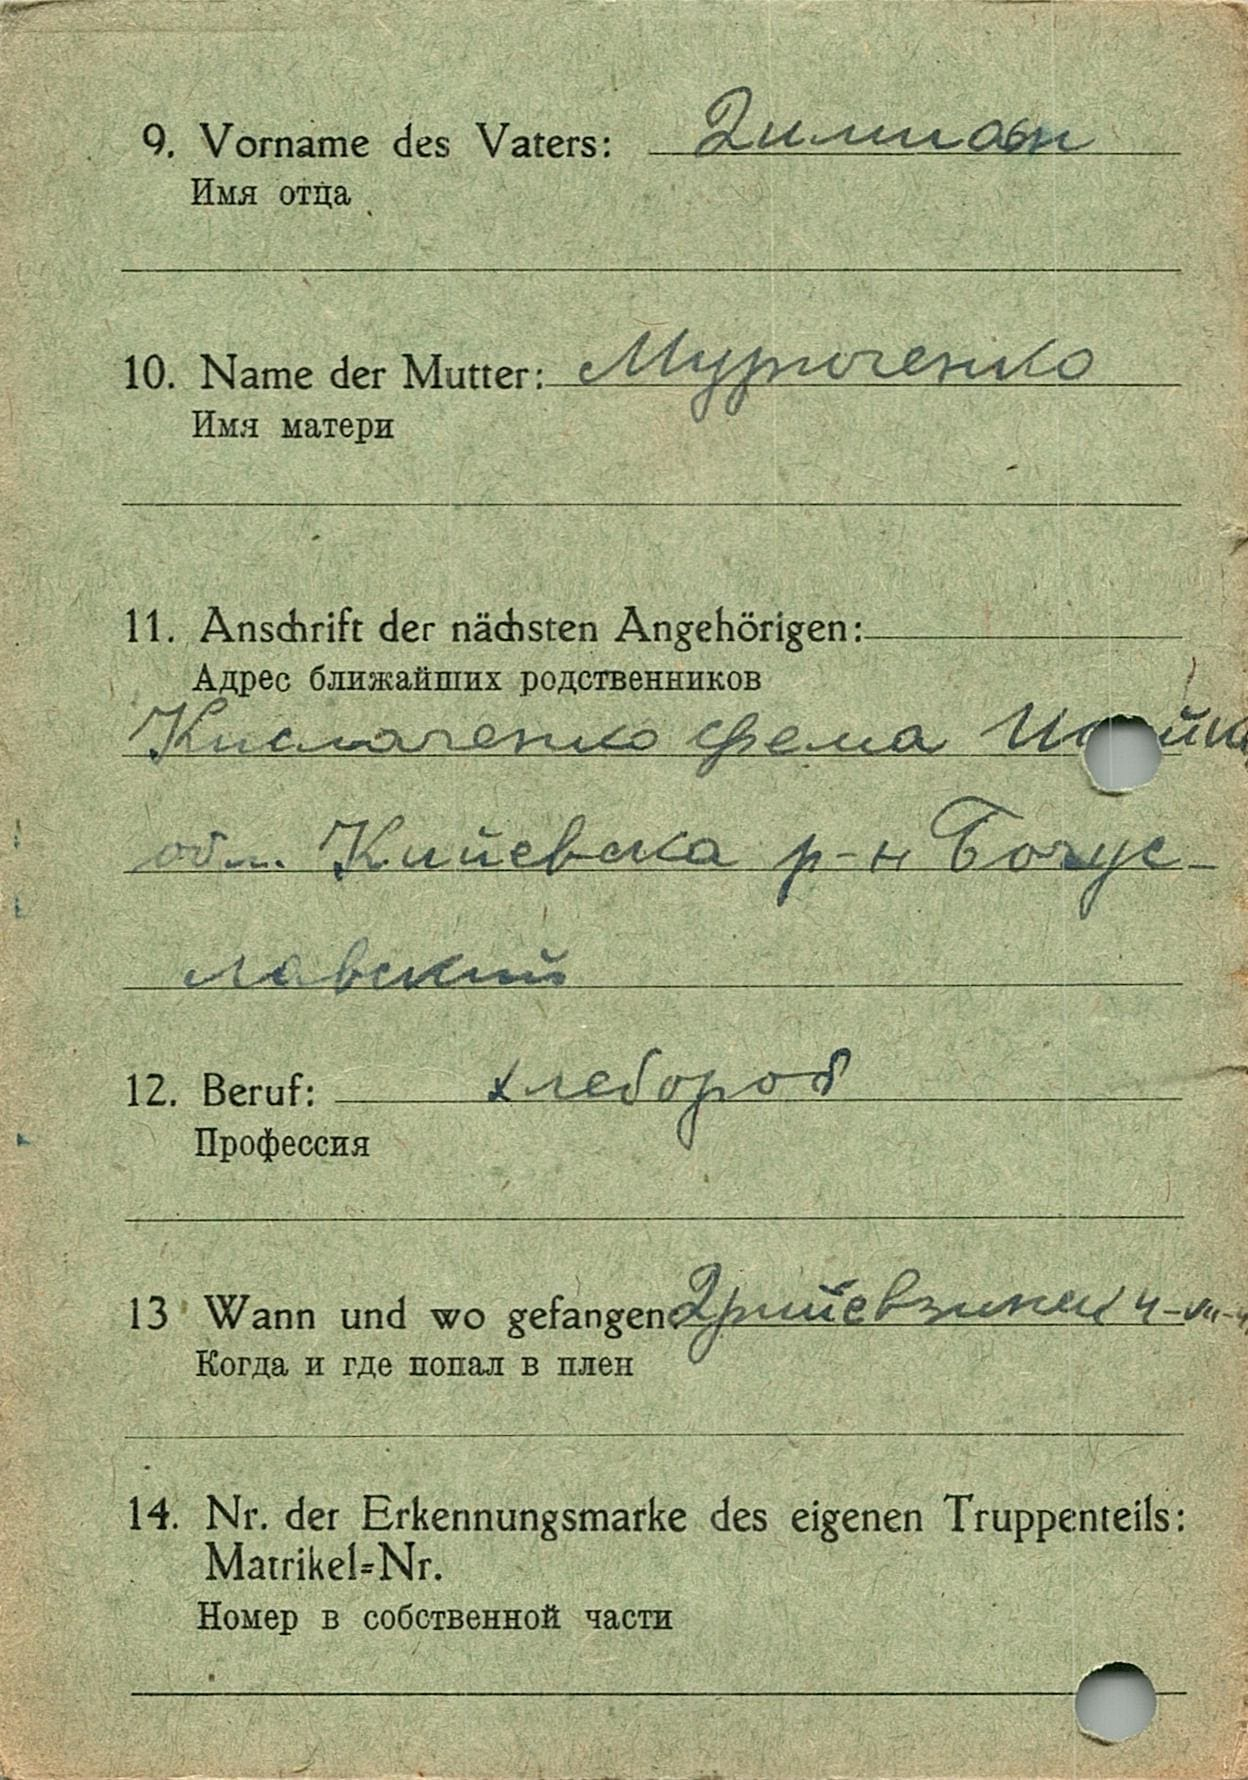 9. Vorname des Vaters:
Имя отца
10. Name der Mutter:
Имя матери
11. Anschrift der nächsten Angehörigen:
Адрес ближайших родственников
фема
обл. Кийевска р-н Богус-
лавский
12. Beruf: хлебороб
Профессия
13 Wann und wo gefangen
Когда и где попал в плен
14. Nr. der Erkennungsmarke des eigenen Truppenteils:
Matrikel=Nr.
Номер в собственной части